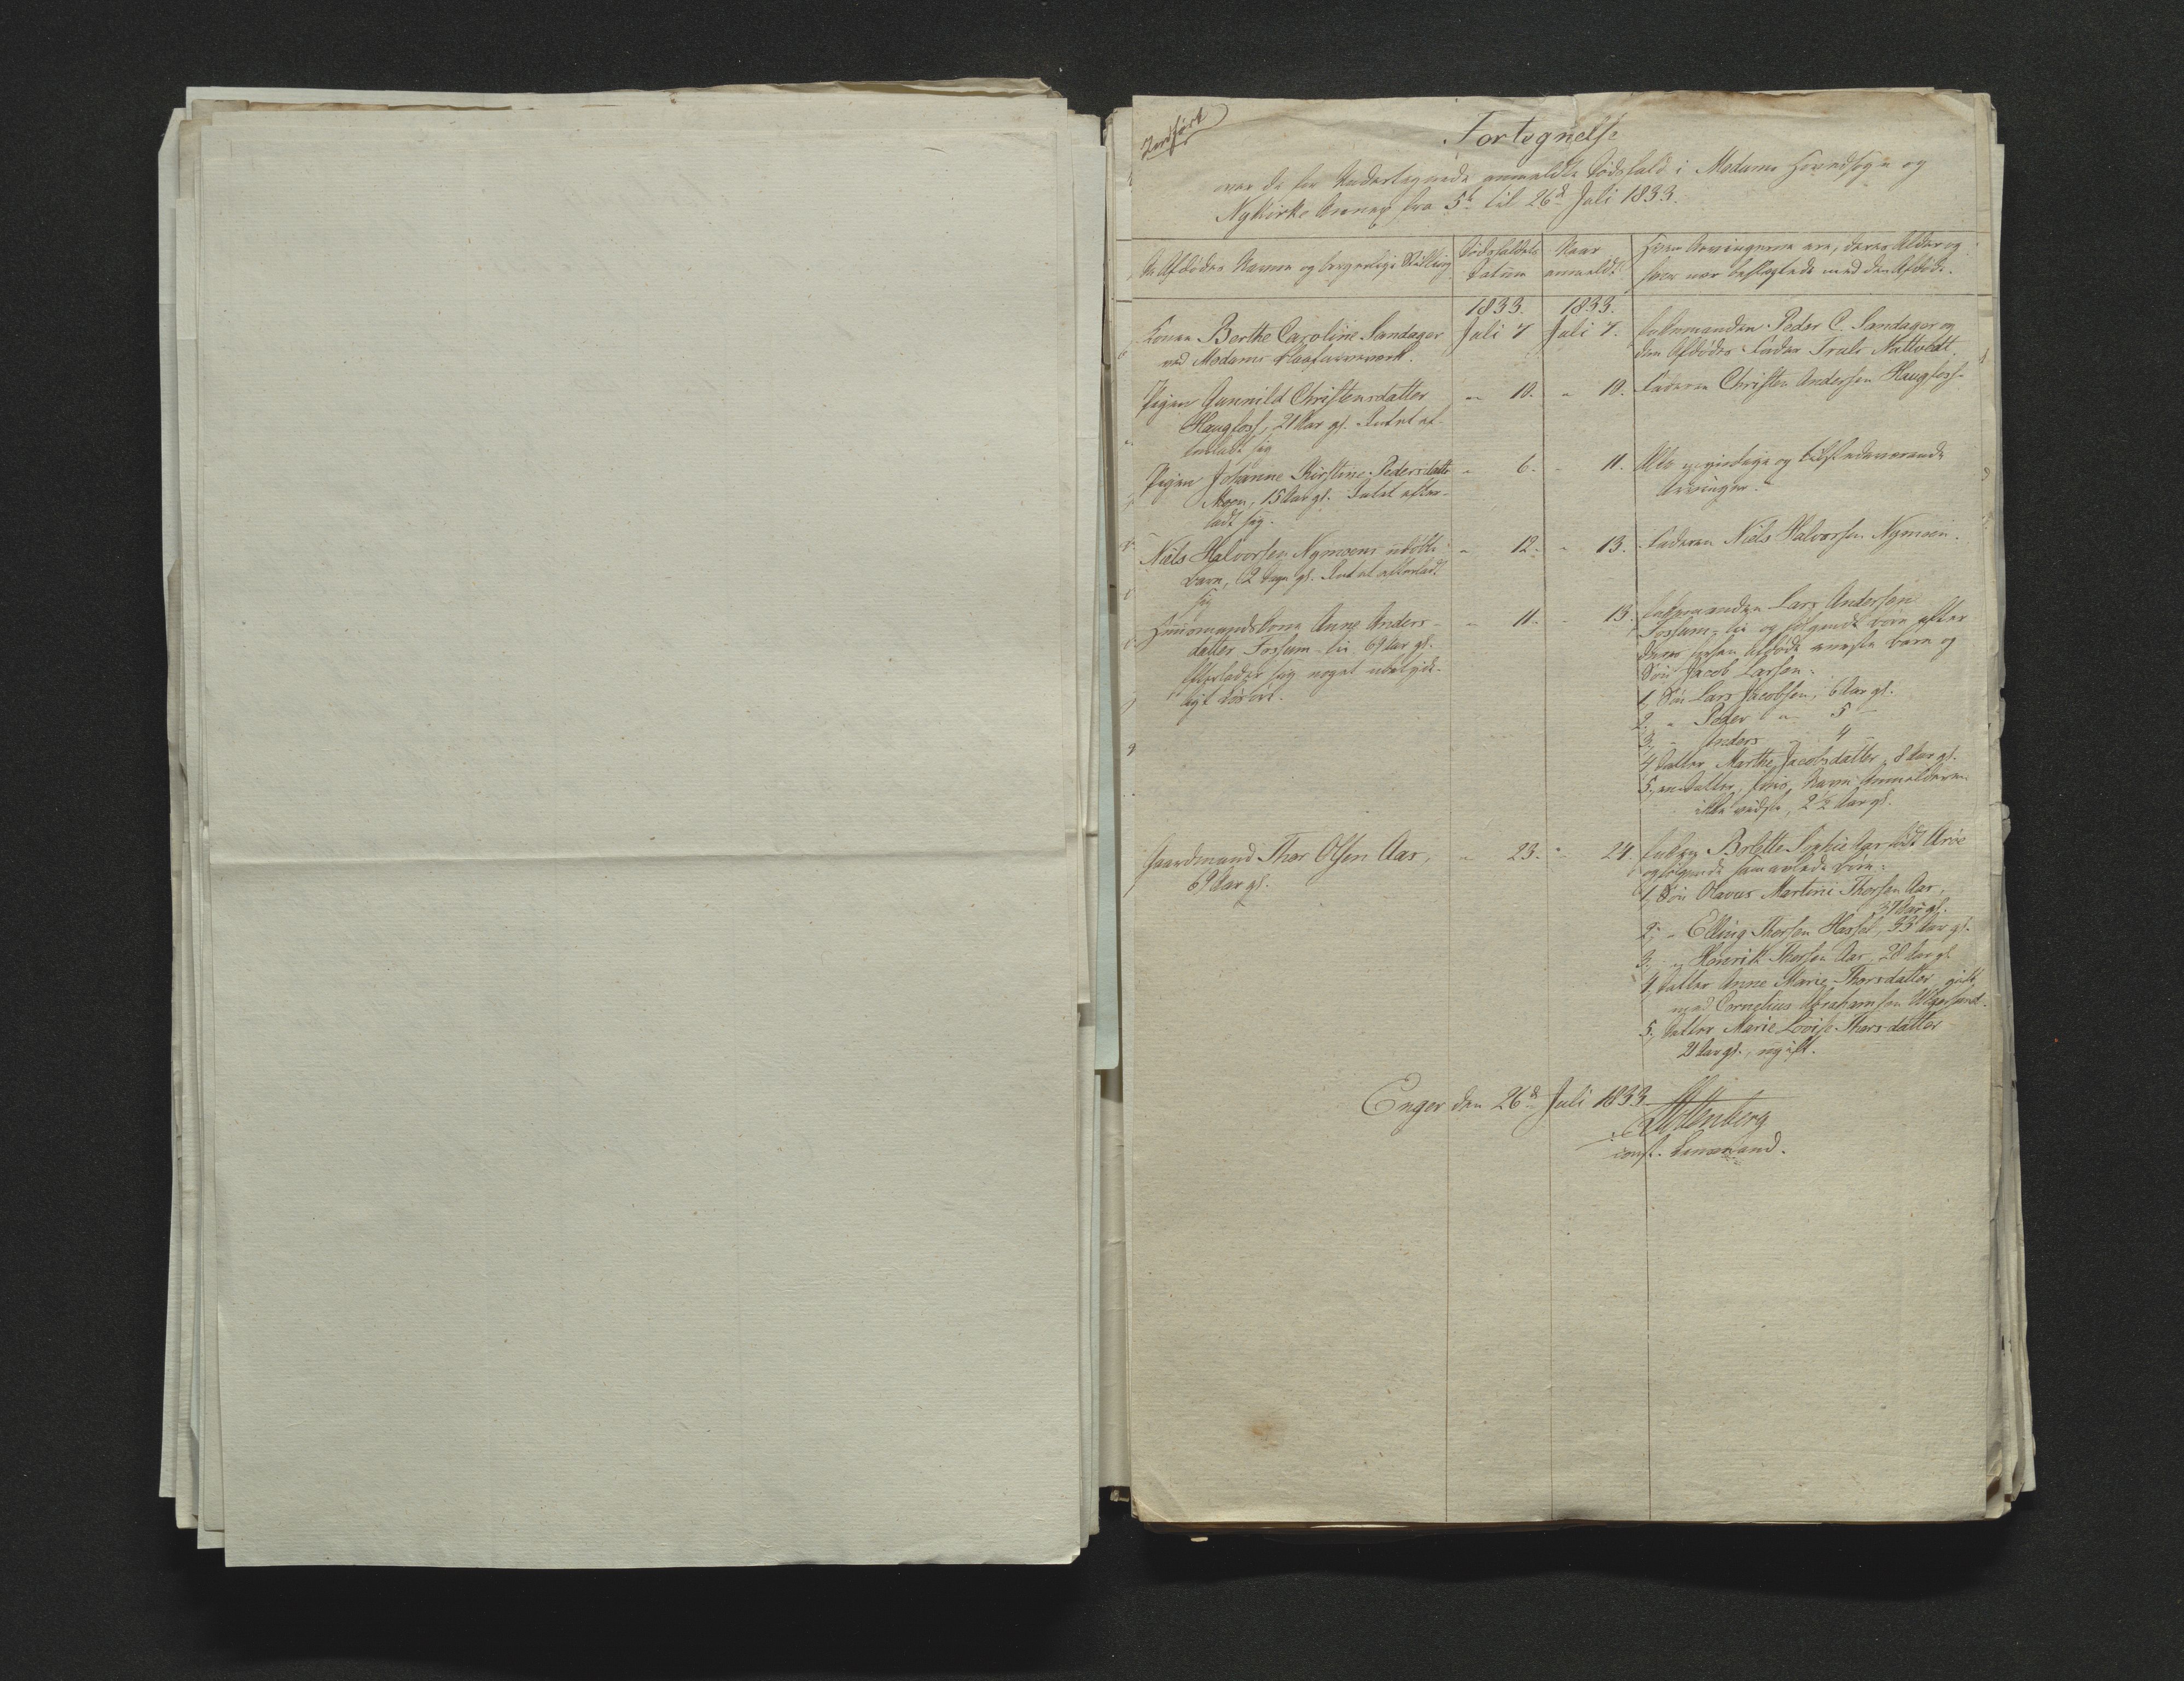 Indført
Fortegnelse
over de for Undertegnede anmeldte Dødsfald i Modums Hovedsogn og
Nykirke Annex fra 5te til 26de Juli 1833.
De Afdødes Navne og borgerlige Stilling
Dødsfaldets Datum
Naar anmeldt
Hvem Arvingerne ere, deres Alder og
hvor nær beslægtede med den Afdøde.
1833. 1833.
Konen Berthe Caroline Sandager Juli 7 Juli 7. Enkemanden Peder C. Sandager og
ved Modums Blaafarveværk. den Afdødes Fader Truls Nattvedt.
Pigen Gunnild Christensdatter " 10. " 10. Faderen Christen Andersen Haugfoss.
Haugfoss, 21 Aar gl. Intet ef-
terladt sig
Pigen Johanne Kirstine Pedersdatter " 6. " 11. Alle myndige og tilstedeværende
Moen, 15 Aar gl. Intet efter- Arvinger.
ladt sig.
Niels Halvorsen Nymoens udøbte " 12. " 13. Faderen Niels Halvorsen Nymoen.
Barn, 12 Dage gl. Intet efterladt
sig
Huusmandskone Anne Anders- " 11. " 13. Enkemanden Lars Andersen
datter Fossum-Eie 69 Aar gl. Fossum-Eie og følgende Børn efter
Efterlader sig noget ubetyde- deres forhen afdøde eneste Barn og
ligt Løsøre. Søn Jacob Larsen:
1, Søn Lars Jacobsen, 6 Aar gl.
2, " Peder " 5 "
3, " Anders " 4 "
4 Datter Marthe Jacobsdatter, 8 Aar gl.
5, en Datter, hvis Navn Anmelderen
ikke vidste, 2 1/2 Aar gl.
Gaardmand Thor Olsen Aas, " 23. " 24. Enken Bolette Sophie Aas født Arøe
69 Aar gl. og følgende sammenavlede Børn:
1, Søn Olavus Martini Thorsen Aas,
37 Aar gl.
2, " Elling Thorsen Hassel, 33 Aar gl.
3, " Henrik Thorsen Aas, 28 Aar gl.
4, Datter Anne Marie Thorsdatter, gift
med Cornelius Abrahamsen
5, Datter Marie Lovise Thorsdatter
21 Aar gl., ugift.
Enger den 26de Juli 1833
Stoltenberg
const. Lensmand.